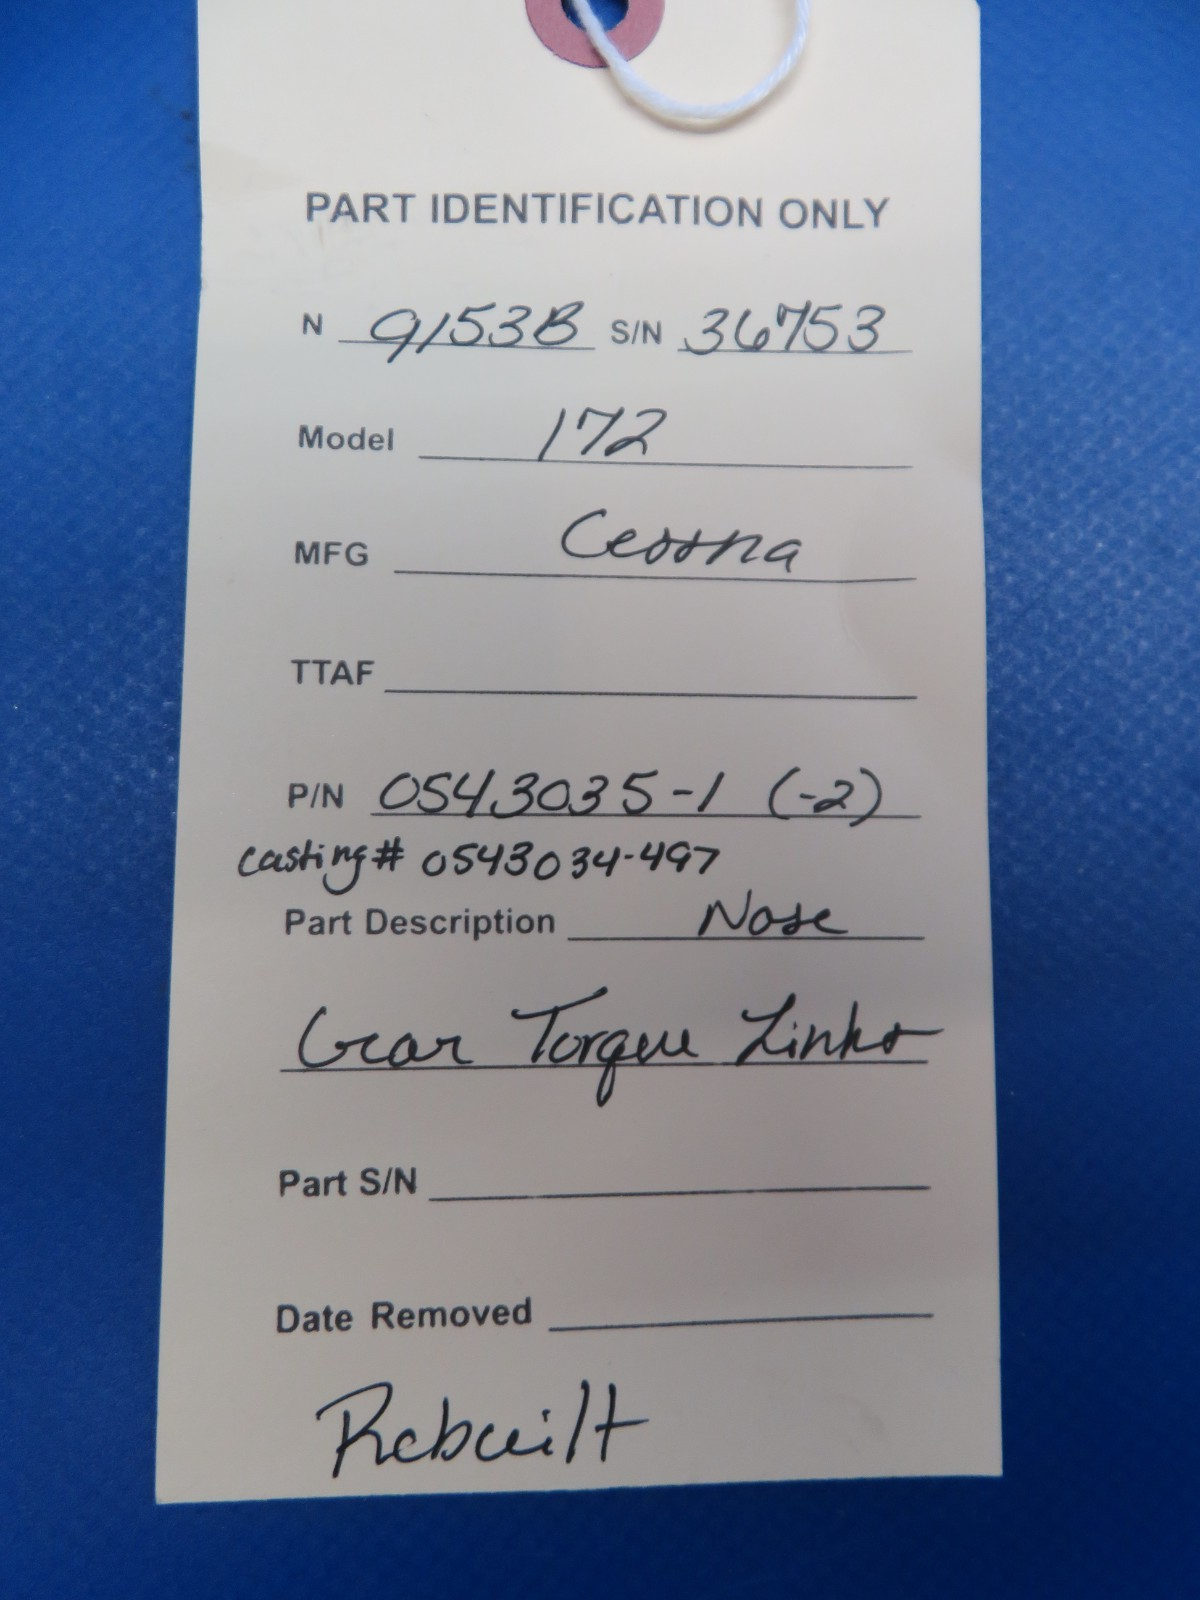 PART IDENTIFICATION ONLY
N 9153B S/N 36753
Model 172
MFG Cessna
TTAF
P/N 0543035-1 (-2)
casting# 0543034-497
Part Description Nose
Gear Torque Links
Part S/N
Date Removed
Rebuilt